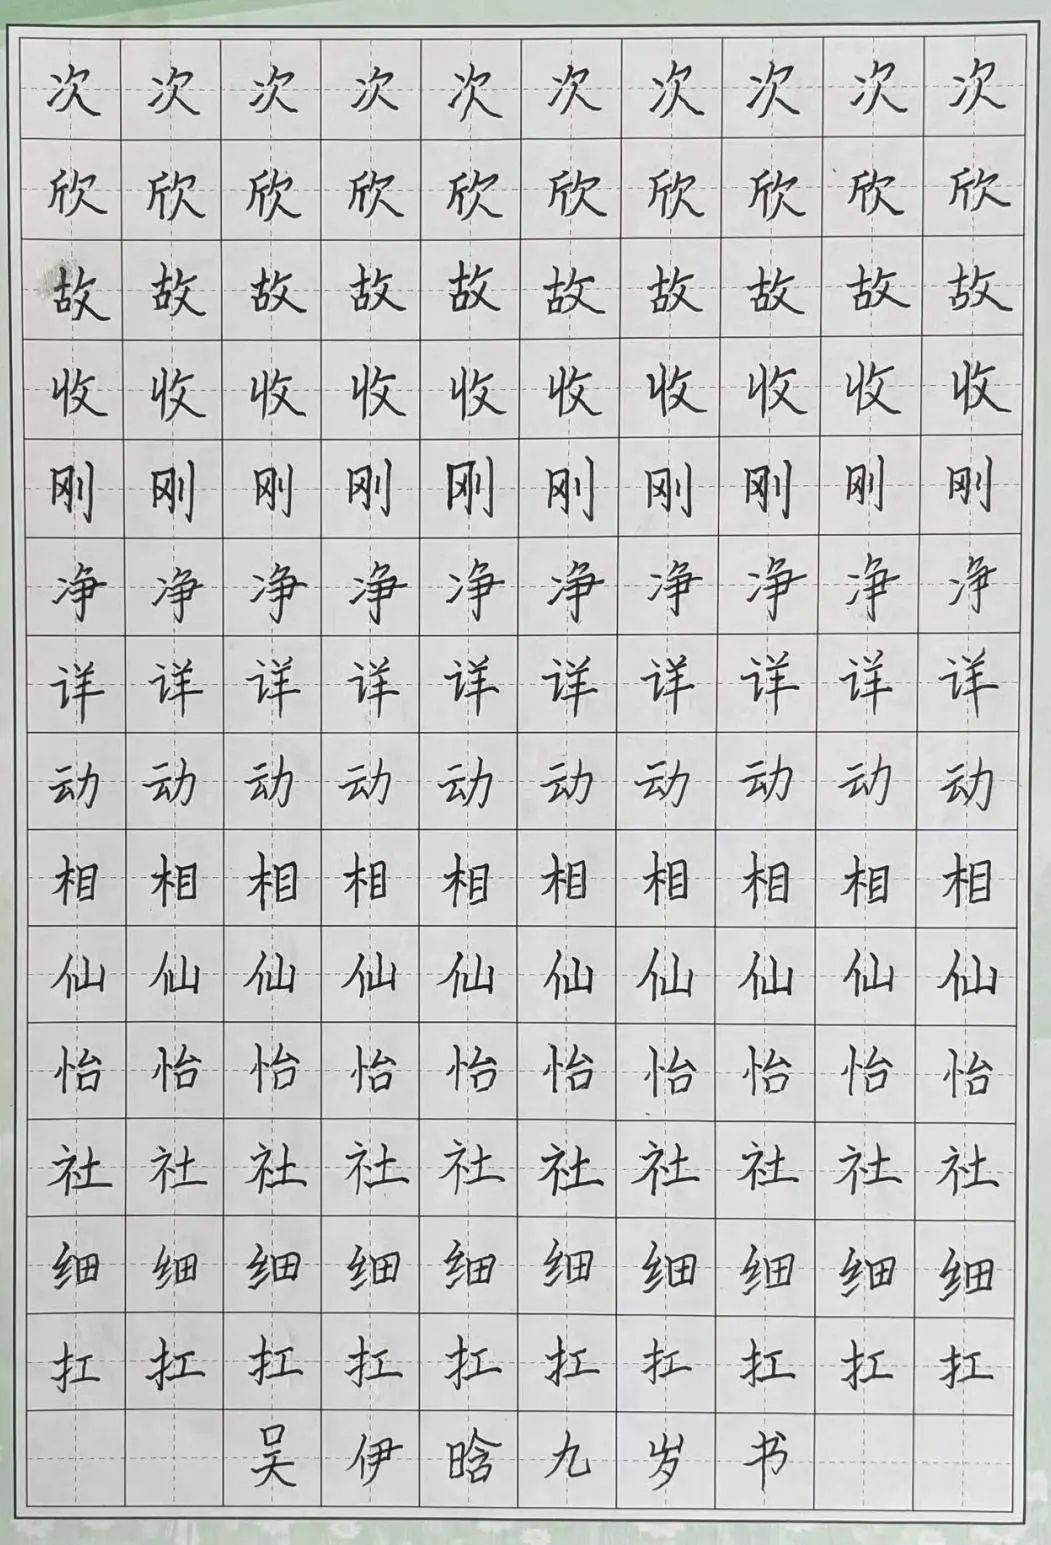 次次次次次次次次次次
欣欣欣欣欣欣欣欣欣欣
故故故故故故故故故故
收收收收收收收收收收
刚刚刚刚刚刚刚刚刚刚
净净净净净净净净净净
详详详详详详详详详详
动动动动动动动动动动
相相相相相相相相相相
仙仙仙仙仙仙仙仙仙仙
怡怡怡怡怡怡怡怡怡怡
社社社社社社社社社社
细细细细细细细细细细
扛扛扛扛扛扛扛扛扛扛
吴伊晗九岁书